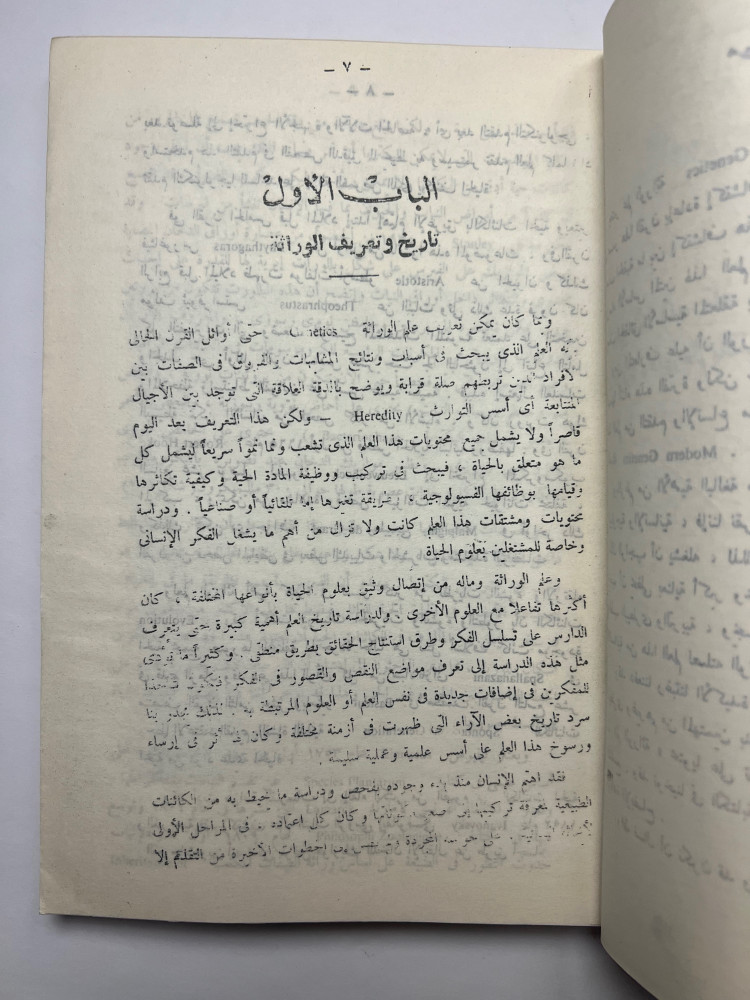 – ٧ –
الباب الأول
تاريخ وتعريف الوراثة
وبما كان يمكن تعريف علم الوراثة Genetics حتى أوائل القرن الحالى
العلم الذى يبحث فى أسباب ونتائج المشابهات والفروق فى الصفات بين
الأفراد الذين تربطهم صلة قرابة ويوضح بالدقة العلاقة التى توجد بين الأجيال
المتتابعة أى أسس التوارث Heredity – ولكن هذا التعريف يعد اليوم
قاصراً ولا يشمل جميع محتويات هذا العلم الذى تشعب ونما نمواً سريعاً ليشمل كل
ما هو متعلق بالحياة ، فيبحث فى تركيب ووظيفة المادة الحية وكيفية تكاثرها
وقيامها بوظائفها الفسيولوجية ، وطريقة تغيرها إما تلقائياً أو صناعياً . ودراسة
محتويات ومشتقات هذا العلم كانت ولا تزال من أهم ما يشغل الفكر الإنسانى
وخاصة للمشتغلين بعلوم الحياة
وعلم الوراثة وماله من إتصال وثيق بعلوم الحياة بأنواعها المختلفة ، كان
أكثرها تفاعلا مع العلوم الأخرى . ولدراسة تاريخ العلم أهمية كبيرة حتى يتعرف
الدارس على تسلسل الفكر وطرق استنتاج الحقائق بطريق منطقى . وكثيراً ما تؤدى
مثل هذه الدراسة إلى تعرف مواضع النقص والقصور فى الفكر فيكون
للمفكرين فى إضافات جديدة فى نفس العلم أو العلوم المرتبطة به . لذلك يجدو بنا
سرد تاريخ بعض الآراء التى ظهرت فى أزمنة مختلفة وكان لها أثر فى إرساء
ورسوخ هذا العلم على أسس علمية وعملية سليمة .
فقد اهتم الإنسان منذ بدء وجوده بفحص ودراسة ما يحيط به من الكائنات
الطبيعية لمعرفة تركيبها وكان كل اعتماده . فى المراحل الأولى
على حواسه المجردة الخطوات الأخيرة من التقدم إلا